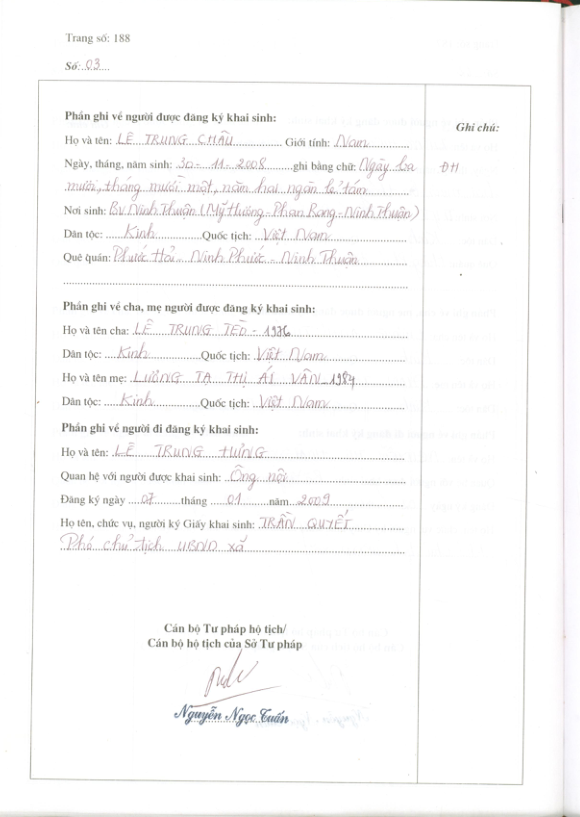 Trang số: 188
Số: 03
Phần ghi về người được đăng ký khai sinh:
Ghi chú:
Họ và tên: LÊ TRUNG CHÂU Giới tính: Nam
Ngày, tháng, năm sinh: 30 - 11 - 2008 ghi bằng chữ: Ngày ba
ĐH
mươi, tháng mười một, năm hai ngàn lẻ tám
Nơi sinh: Bv Ninh Thuận (Mỹ Hương - Phan Rang - Ninh Thuận)
Dân tộc: Kinh Quốc tịch: Việt Nam
Quê quán: Phước Hải - Ninh Phước - Ninh Thuận
Phần ghi về cha, mẹ người được đăng ký khai sinh:
Họ và tên cha: LÊ TRUNG TÈO - 1976
Dân tộc: Kinh Quốc tịch: Việt Nam
Họ và tên mẹ: LƯƠNG TẠ THỊ ÁI VÂN - 1984
Dân tộc: Kinh Quốc tịch: Việt Nam
Phần ghi về người đi đăng ký khai sinh:
Họ và tên: LÊ TRUNG HƯNG
Quan hệ với người được khai sinh: Ông nội
Đăng ký ngày 07 tháng 01 năm 2009
Họ tên, chức vụ, người ký Giấy khai sinh: TRẦN QUYẾT
Phó chủ tịch UBND xã
Cán bộ Tư pháp hộ tịch/
Cán bộ hộ tịch của Sở Tư pháp
Nguyễn Ngọc Tuấn